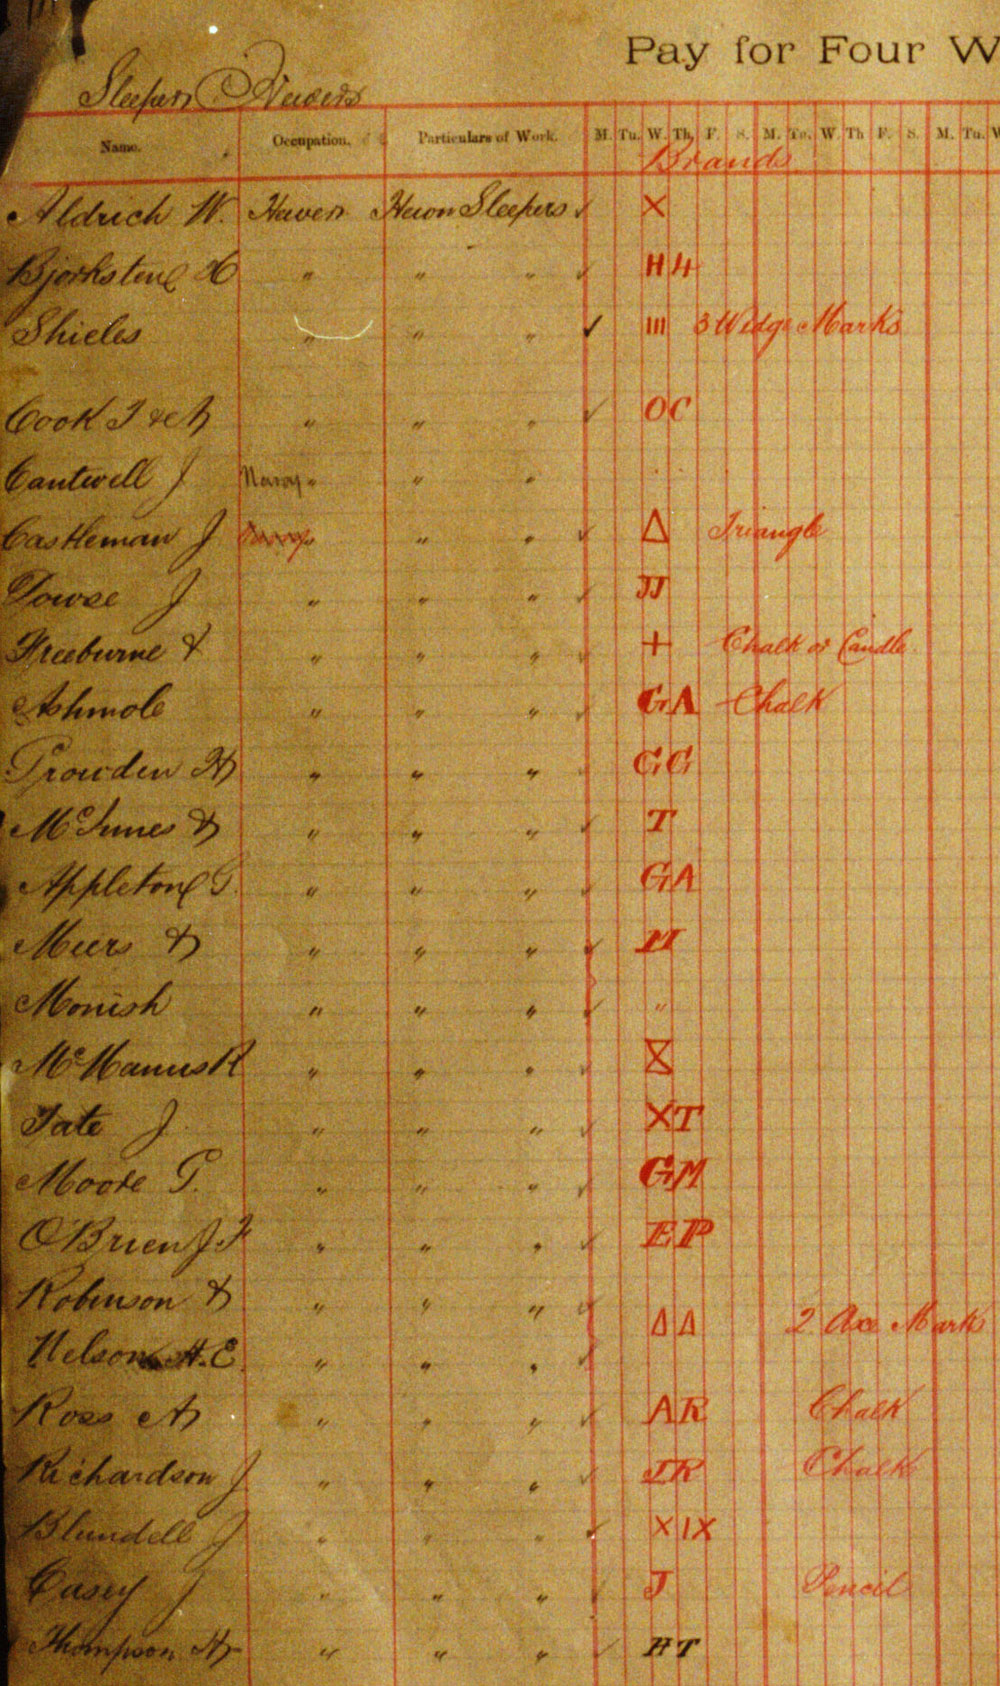 Pay for Four W
Sleeper Hewers
Name. Occupation. Particulars of Work. M. Tu. W. Th. F. S. M. Tu. W. Th F. S. M. Tu. W
Brands
Aldrich W. Hewer Hewn Sleepers ✓ X
Bjorksten H " " " ✓ H4
Shieles " " " ✓ III 3 Widge Marks
Cook J & A " " " ✓ OC
Cantwell J Navvy " " "
Castleman J " " " ✓ Δ Triangle
Dowse J " " " ✓ JJ
Freeburne " " " ✓ + Chalk or Candle
Ashmole " " " ✓ GA Chalk
Growden H " " " ✓ GG
McInnes D " " " ✓ T
Appleton G. " " " ✓ GA
Meers D " " " ✓ M
Monish " " " ✓ "
McManus R " " " ✓
Tate J " " " ✓ XT
Moore G. " " " ✓ GM
O'Brien J. F " " " ✓ EP
Robinson D " " " ✓
Δ Δ 2 Axe Mark
Nelson H. E " " " ✓
Ross A " " " ✓ AR Chalk
Richardson J " " " ✓ JR Chalk
Blundell J " " " ✓ XIX
Casey J " " " ✓ J Pencil
Thompson H " " " ✓ HT